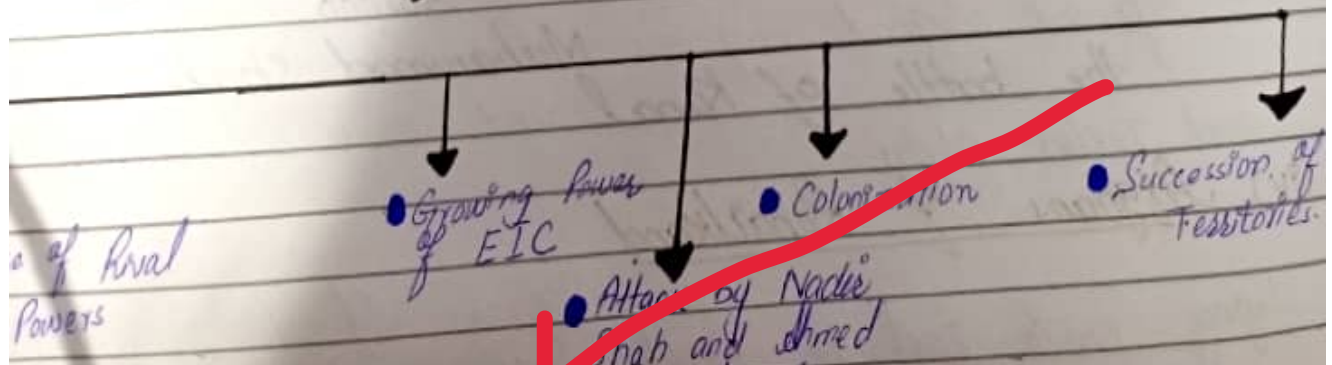 of Rival
Powers
Growing Power
of EIC
Attack by Nadir
Shah and Ahmed
Colonization
Succession of
Territories.